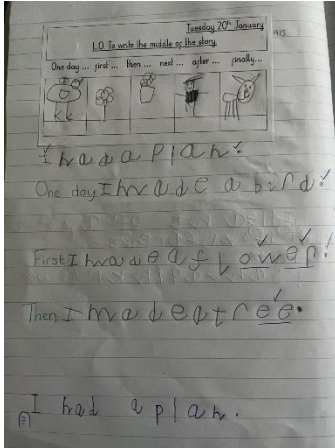 Tuesday 20th January
L.O. To write the middle of the story.
One day... first... then... next... after... finally...
I had a plan!
One day I made a bird!
First I made a flower!
Then I made a tree.
I had a plan.